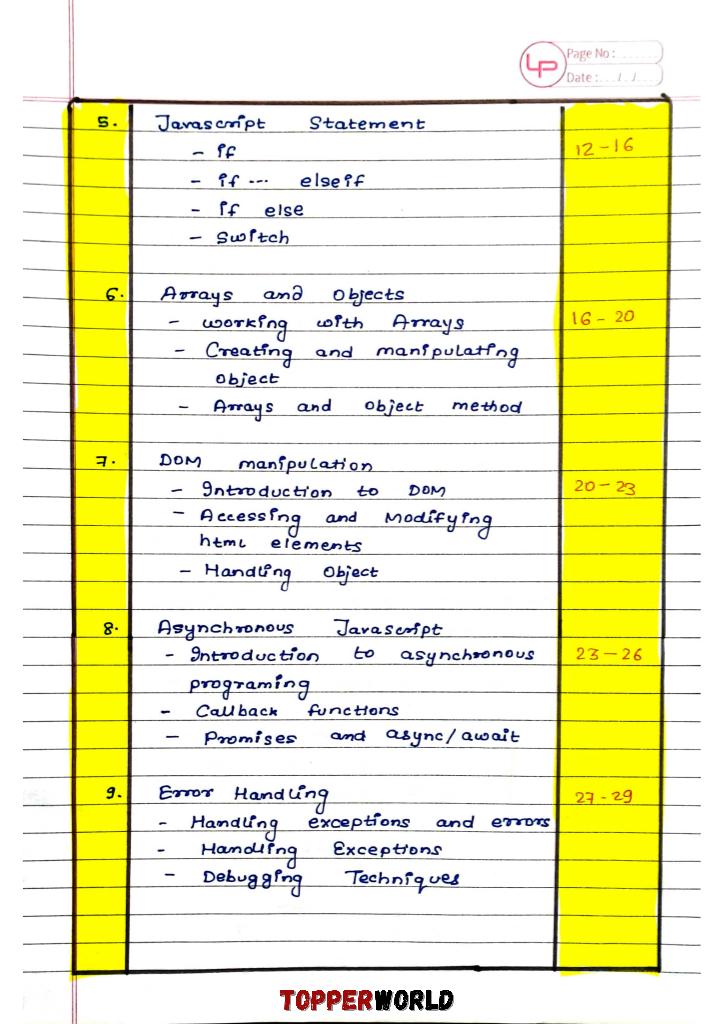 LP
Page No :
Date : / /
5. Javascript Statement
12-16
- if
- if --- elseif
- if else
- Switch
6. Arrays and Objects
- working with Arrays 16-20
- Creating and manipulating
object
- Arrays and object method
7. DOM manipulation
- Introduction to DOM 20-23
- Accessing and Modifying
html elements
- Handling Object
8. Asynchronous Javascript
- Introduction to asynchronous 23-26
programing
- Callback functions
- Promises and async/await
9. Error Handling 27-29
- Handling exceptions and errors
- Handling Exceptions
- Debugging Techniques
TOPPERWORLD